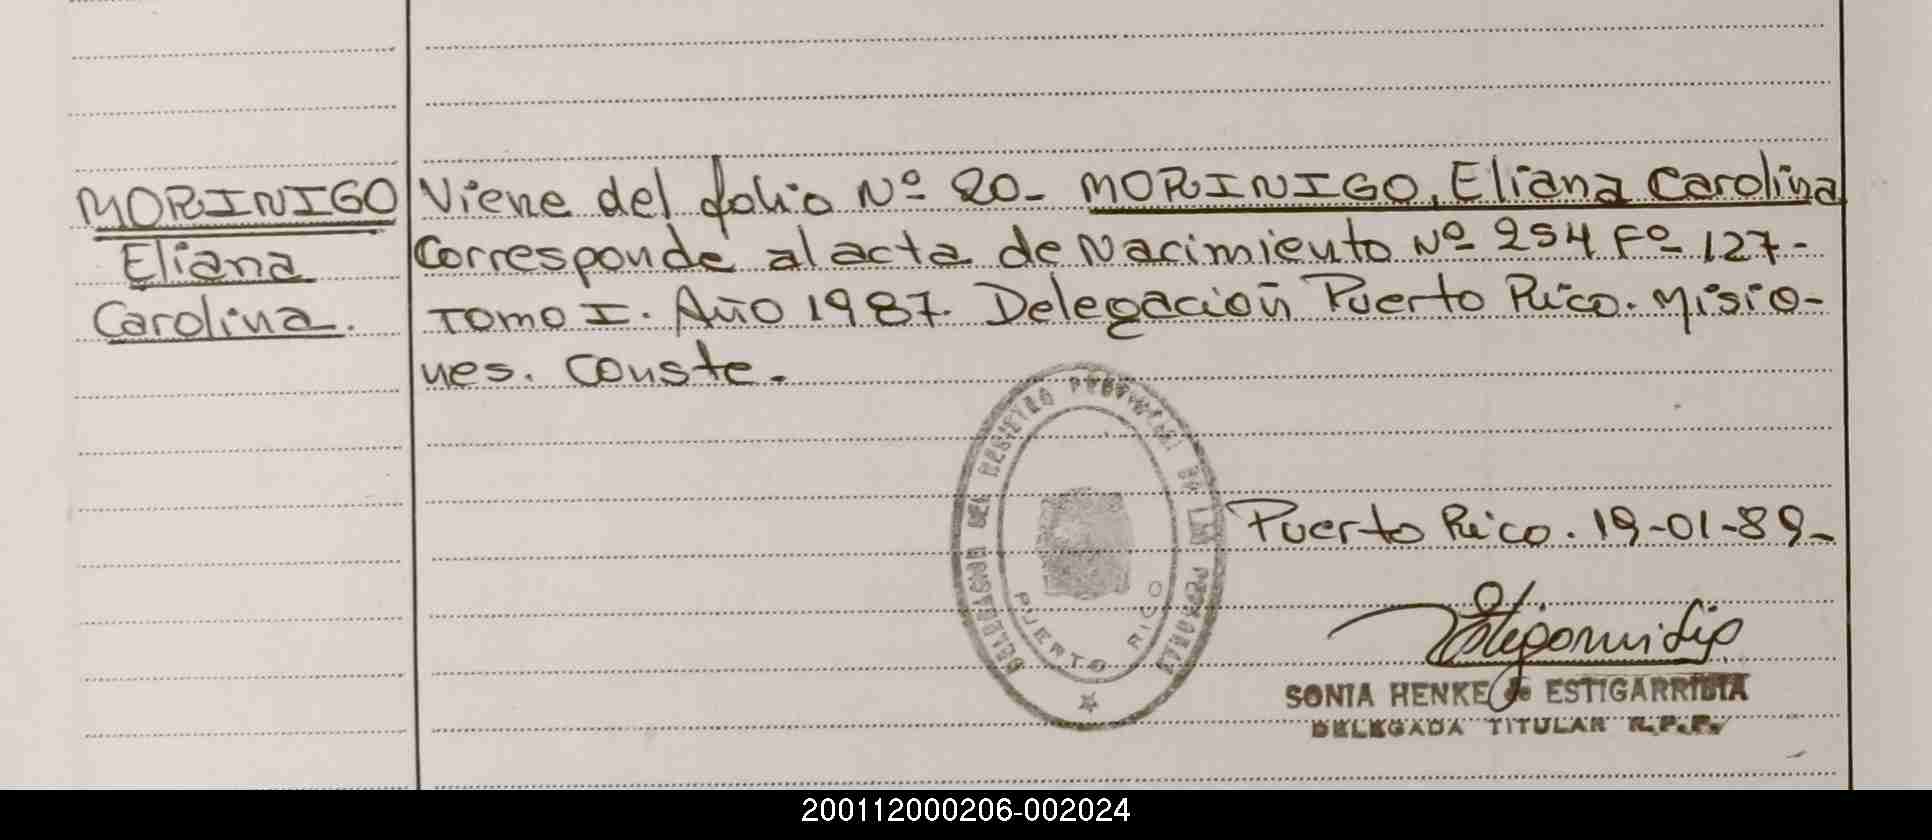 MORINIGO
Eliana
Carolina.
Viene del folio Nº 20- MORINIGO, Eliana Carolina
Corresponde al acta de Nacimiento Nº 254 Fº 127-
Tomo I. Año 1987. Delegación Puerto Rico. Misio-
nes. Conste.
DELEGACION DEL REGISTRO PROVINCIAL DE LAS PERSONAS
PUERTO RICO
Puerto Rico. 19-01-89-
SONIA HENKE de ESTIGARRIBIA
DELEGADA TITULAR R.P.P.
200112000206-002024